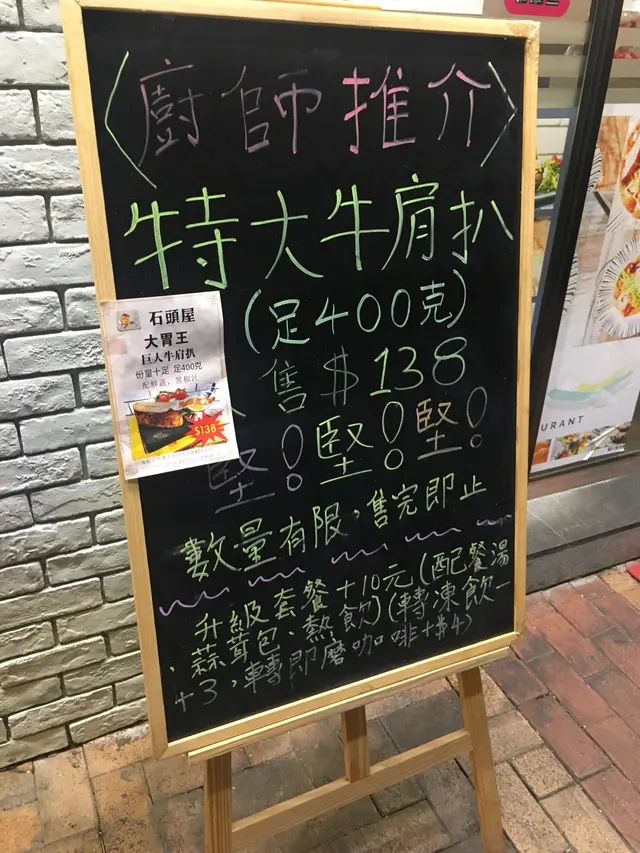 〈廚師推介〉
特大牛肩扒
(足400克)
售$138
堅!堅!堅!
數量有限,售完即止
升級套餐+10元(配餐湯
、蒜茸包、熱飲)(轉凍飲一
+3,轉即磨咖啡+$4)
石頭屋
大胃王
巨人牛肩扒
份量十足 足400克
配鮮蔬,黑椒汁
$138
URANT